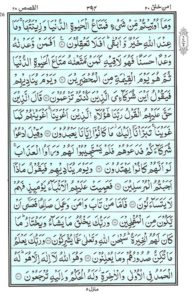 امن خلق ٢٠ ٣٩٢ القصص ٢٨
وما اوتيتم من شيء فمتاع الحيوة الدنيا وزينتها وما
عند الله خير وابقى افلا تعقلون افمن وعدنه
وعدا حسنا فهو لاقيه كمن متعنه متاع الحيوة الدنيا
ثم هو يوم القيمة من المحضرين ويوم يناديهم
فيقول اين شركاءي الذين كنتم تزعمون قال الذين
حق عليهم القول ربنا هؤلاء الذين اغوينا اغوينهم كما
غوينا تبرانا اليك ما كانوا ايانا يعبدون وقيل ادعوا
شركاءكم فدعوهم فلم يستجيبوا لهم وراوا العذاب
لو انهم كانوا يهتدون ويوم يناديهم فيقول ماذا
اجبتم المرسلين فعميت عليهم الانباء يومئذ فهم
لا يتساءلون فاما من تاب وامن وعمل صالحا فعسى ان
يكون من المفلحين وربك يخلق ما يشاء ويختار ما
كان لهم الخيرة سبحن الله وتعلى عما يشركون وربك يعلم
ما تكن صدورهم وما يعلنون وهو الله لا اله الا هو له
الحمد في الاولى والاخرة وله الحكم واليه ترجعون
منزل ٥